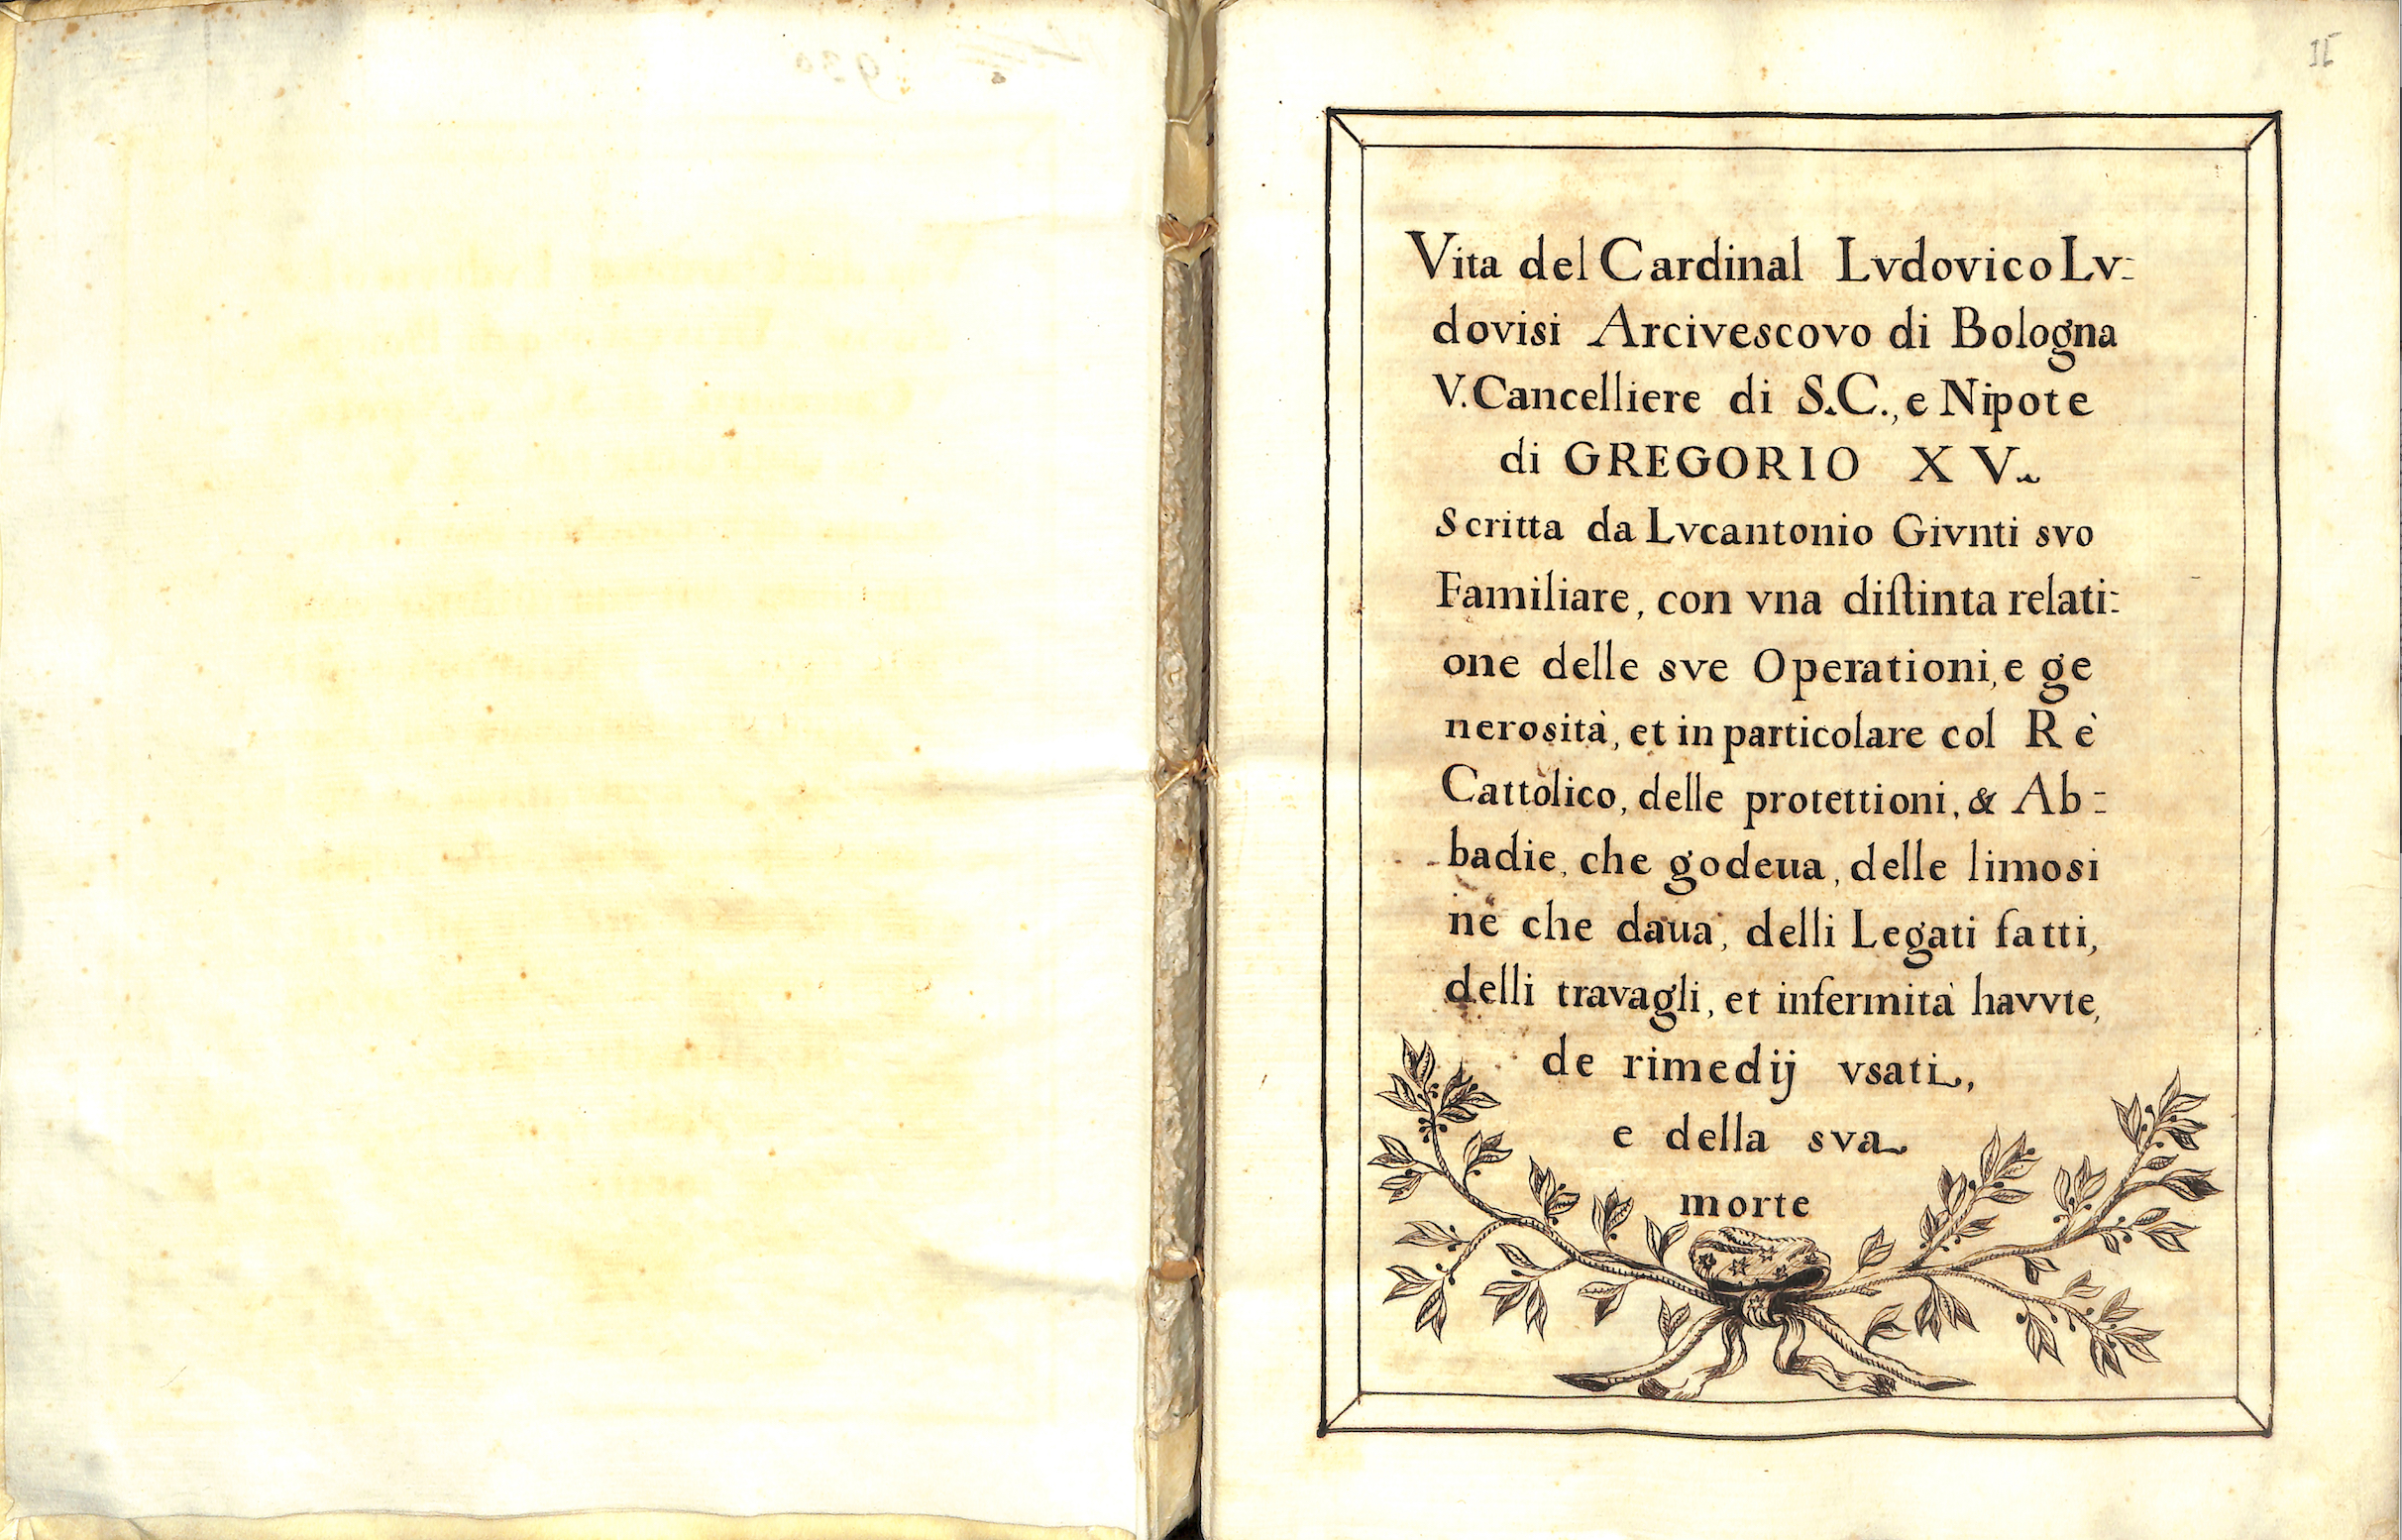 II
Vita del Cardinal Lvdovico Lv:
dovisi Arcivescovo di Bologna
V. Cancelliere di S.C., e Nipote
di GREGORIO XV.
Scritta da Lvcantonio Givnti svo
Familiare, con vna distinta relati:
one delle sve Operationi, e ge
nerosità, et in particolare col Rè
Cattòlico, delle protettioni, & Ab:
badie, che godeua, delle limosi
ne che daua, delli Legati fatti,
delli travagli, et infermità havvte,
de rimedij vsati,
e della sva
morte